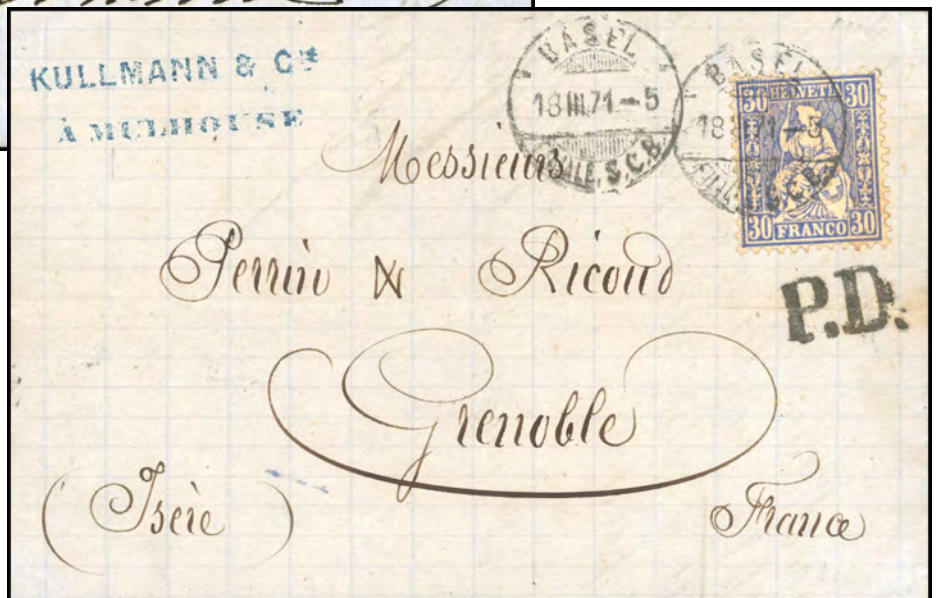 KULLMANN & Cie
À MULHOUSE
BASEL
18 III.71 – 5
FILIALE. S.C.B.
BASEL
18 71 – 5
30 HELVETIA 30
30 FRANCO 30
P.D.
Messieurs
Perrin & Ricoud
Grenoble
(Isère)
France